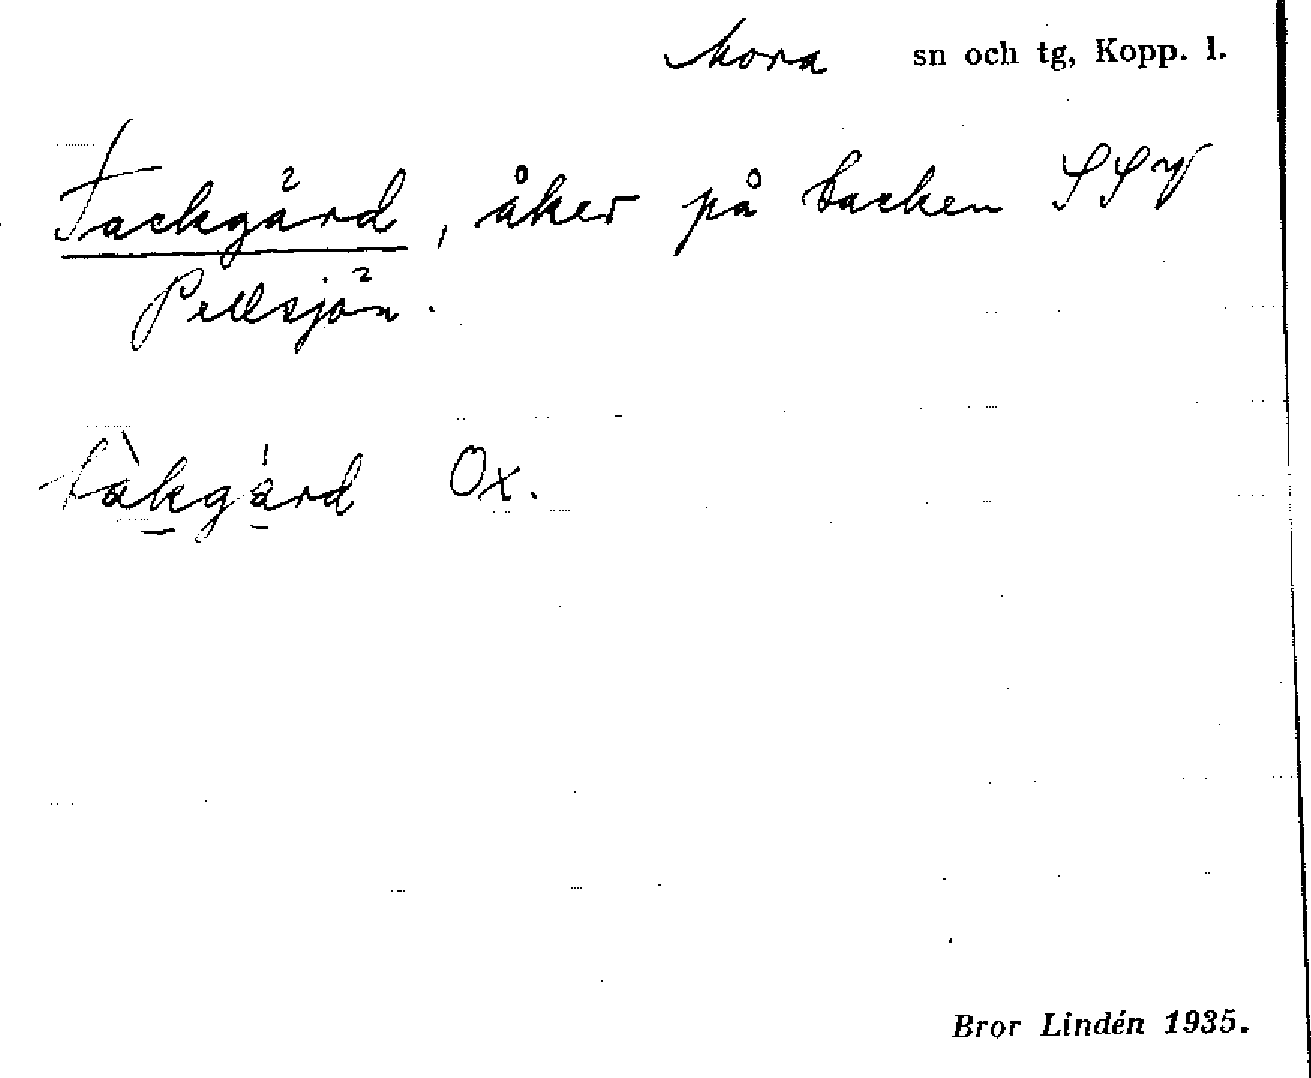 Mora sn och tg, Kopp. l.
Tackgärd, åker på backen SSV
Pellsjön.
tàkgárd Ox.
Bror Lindén 1935.